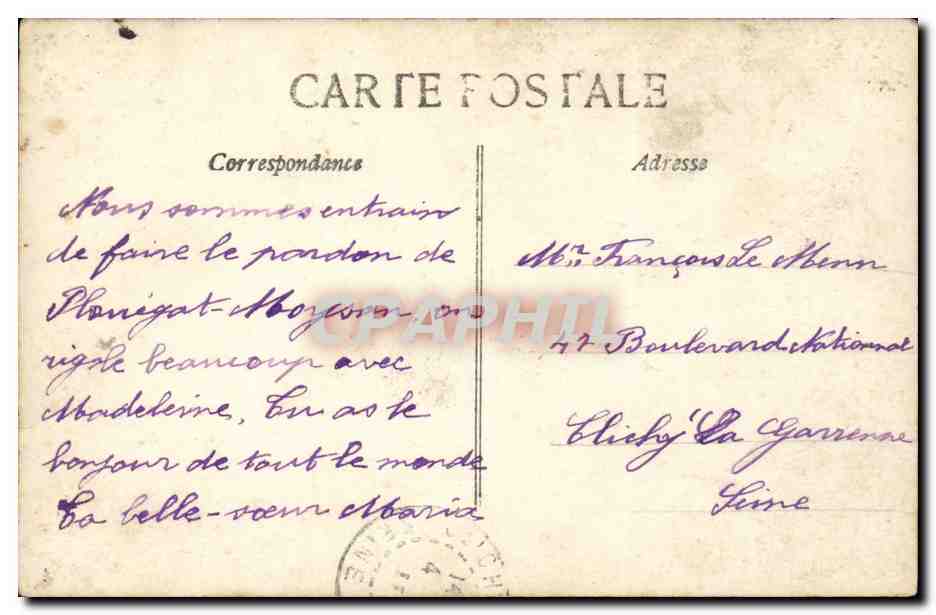 CARTE POSTALE
Correspondance
Adresse
Nous sommes entrain
de faire le pardon de
Plouégat-Moysan, on
rigole beaucoup avec
Madeleine, Tu as le
bonjour de tout le monde
Ta belle-sœur Maria
Mr. François Le Menn
47 Boulevard National
Clichy La Garrenne
Seine
CPAPHIL
CLICHY
14
4